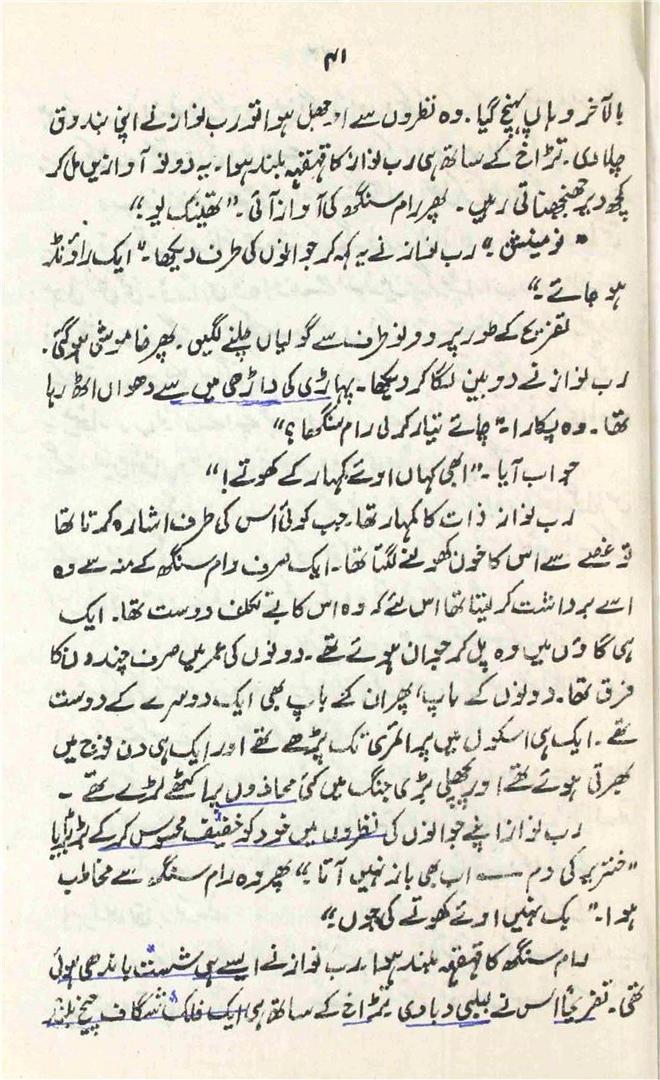 ۴۱
بالآخر وہاں پہنچ گیا۔ وہ نظروں سے اوجھل ہوا تو رب نواز نے اپنی بندوق
چلا دی۔ تڑاخ کے ساتھ ہی رب نواز کا قہقہہ بلند ہوا۔ یہ دونو آوازیں مل کر
کچھ دیر جھنجھناتی رہیں۔ پھر رام سنگھ کی آواز آئی۔ "تھینک یو۔"
"نو مینشن۔" رب نواز نے یہ کہہ کر جوانوں کی طرف دیکھا۔ "ایک راؤنڈ
ہو جائے۔"
تفریح کے طور پر دونو طرف سے گولیاں چلنے لگیں۔ پھر خاموشی ہو گئی۔
رب نواز نے دوربین لگا کر دیکھا۔ پہاڑی کی داڑھی میں سے دھواں اٹھ رہا
تھا۔ وہ پکارا۔ "چائے تیار کر لی رام سنگھا؟"
جواب آیا۔ "ابھی کہاں اوئے کمہار کے کھوتے!"
رب نواز ذات کا کمہار تھا۔ جب کوئی اس کی طرف اشارہ کرتا تھا
تو غصے سے اس کا خون کھولنے لگتا تھا۔ ایک صرف رام سنگھ کے منہ سے وہ
اسے برداشت کر لیتا تھا اس لئے کہ وہ اس کا بے تکلف دوست تھا۔ ایک
ہی گاؤں میں وہ پل کر جوان ہوئے تھے۔ دونوں کی عمر میں صرف چند دن کا
فرق تھا۔ دونوں کے باپ، پھر ان کے باپ بھی ایک دوسرے کے دوست
تھے۔ ایک ہی اسکول میں پرائمری تک پڑھے تھے اور ایک ہی دن فوج میں
بھرتی ہوئے تھے اور پچھلی بڑی جنگ میں کئی محاذوں پر اکٹھے لڑے تھے۔
رب نواز اپنے جوانوں کی نظروں میں خود کو خفیف محسوس کر کے بڑبڑایا
"خنزیر کی دم — اب بھی باز نہیں آتا۔" پھر وہ رام سنگھ سے مخاطب
ہوا۔ "بک نہیں اوئے کھوتے کی جوں۔"
رام سنگھ کا قہقہہ بلند ہوا۔ رب نواز نے ایسے ہی شست باندھی ہوئی
تھی۔ تفریحاً اس نے لبلبی دبا دی تڑاخ کے ساتھ ہی ایک فلک شگاف چیخ بلند